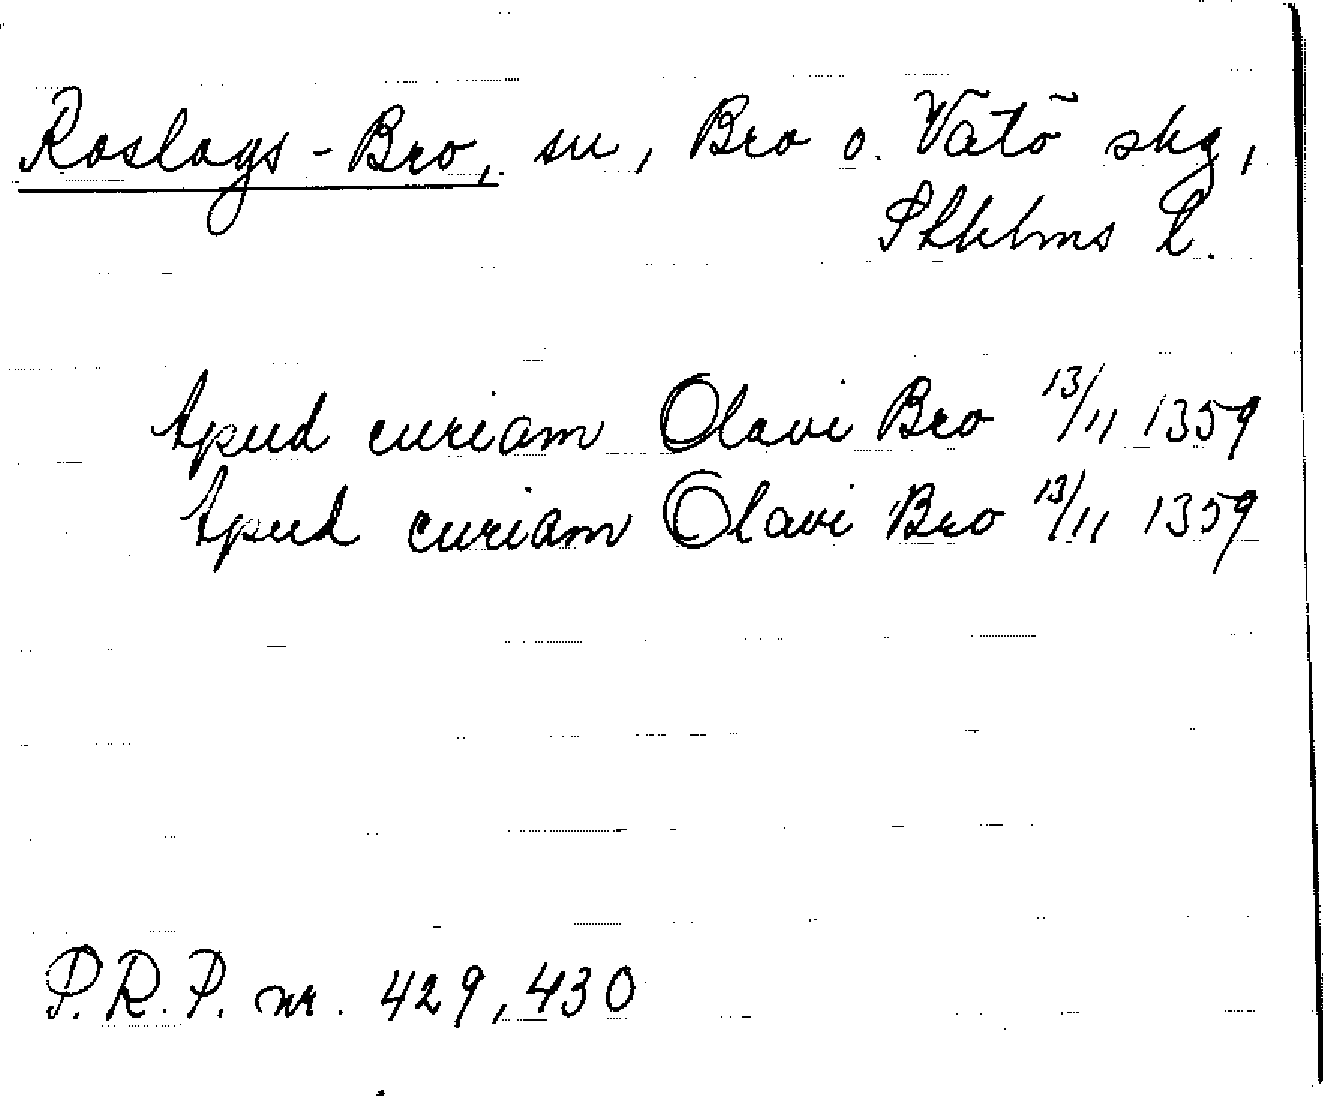 Roslags-Bro, sn, Bro o. Vätö skg,
Sthlms l.
Apud curiam Olavi Bro 13/11 1359
Apud curiam Olavi Bro 13/11 1359
P.R.P. nr. 429, 430